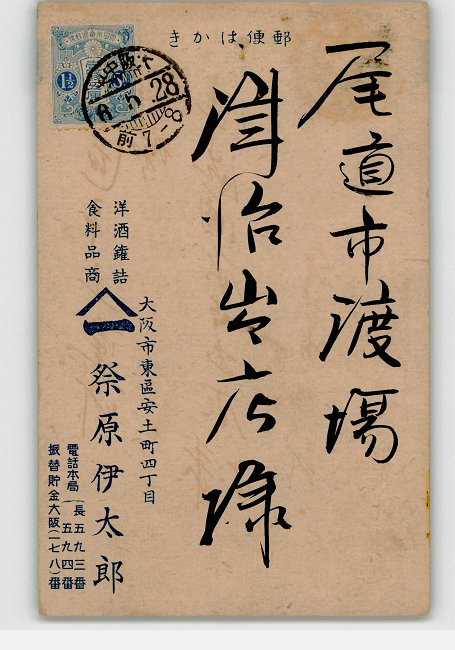 郵便はかき
尾道市渡場
治出店様
大阪市東區安土町四丁目
洋酒鑵詰
食料品商
祭原伊太郎
電話本局(長五九三番
一五九四番
振替貯金大阪(一七八)番
大阪中央
8.5.28
前7-8
1½